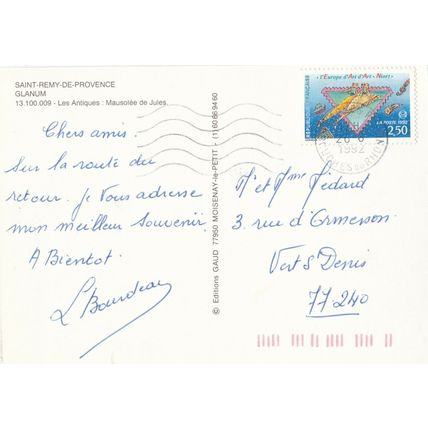 SAINT-REMY-DE-PROVENCE
GLANUM
13.100.009 - Les Antiques : Mausolée de Jules.
Chers amis.
Sur la route du
retour. Je vous adresse
mon meilleur souvenir
A Bientot.
© Editions GAUD 77950 MOISENAY-le-PETIT - (1) 60 66 94 60
"l'Europe d'Art d'Art - Niort"
LA POSTE 1992
2,50
1992
Mr et Mme Médard
3. rue d'Ormesson
Vert St Denis
77240